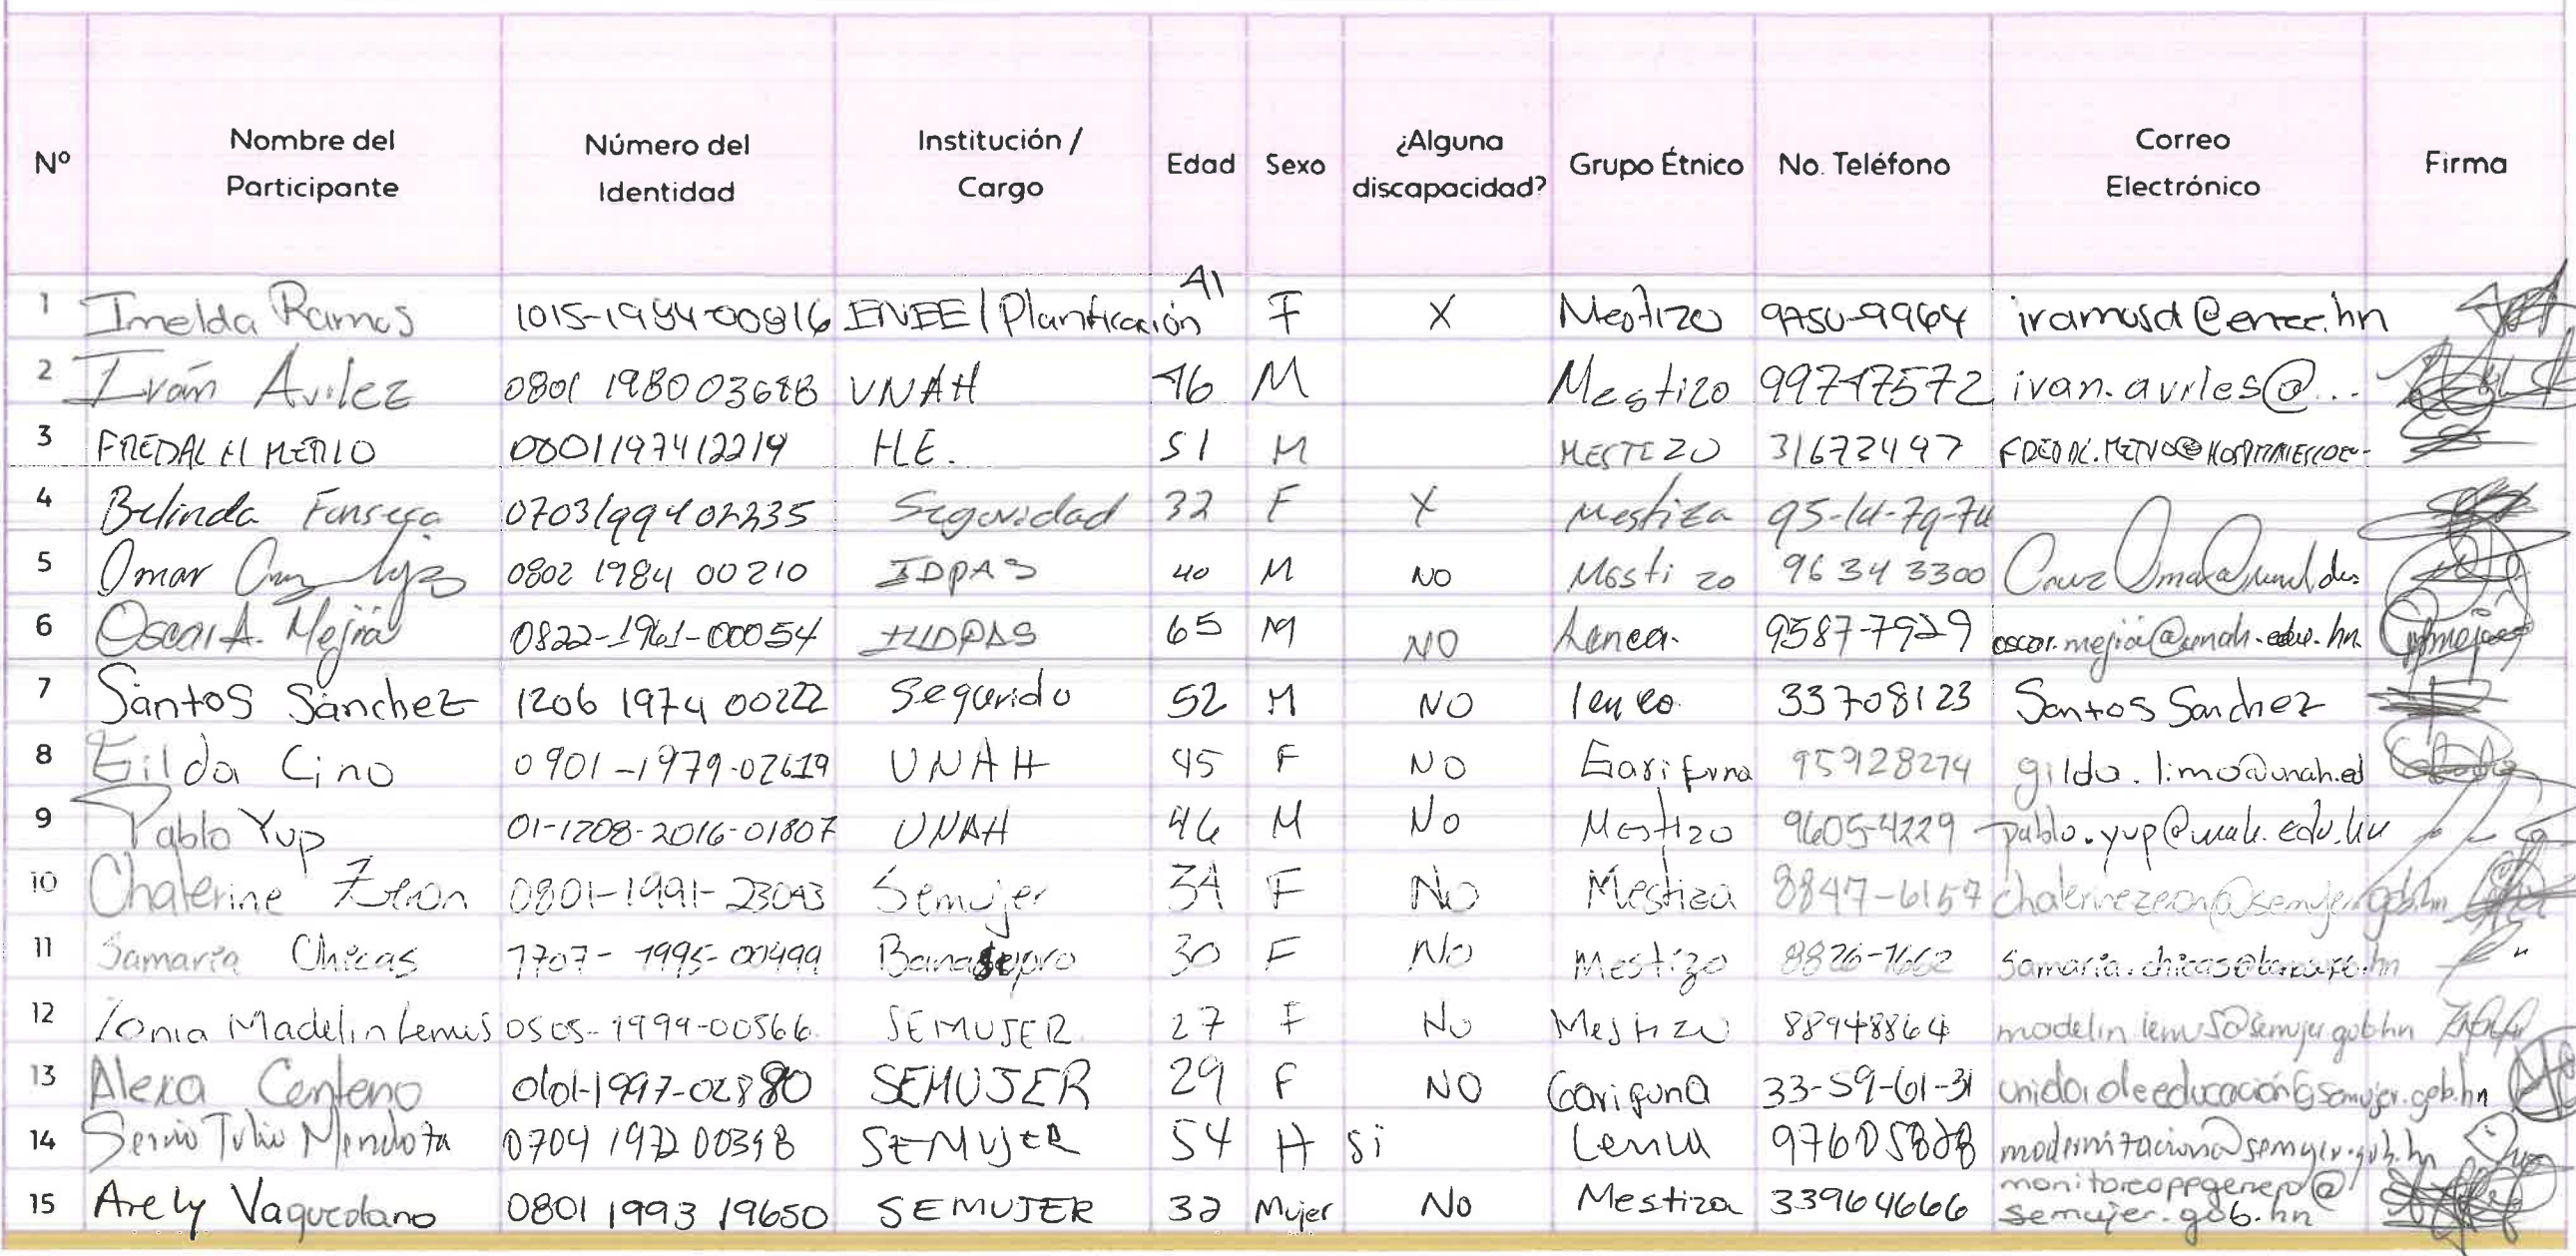 Nº Nombre del Participante Número del Identidad Institución / Cargo Edad Sexo ¿Alguna discapacidad? Grupo Étnico No. Teléfono Correo Electrónico Firma
1 Imelda Ramos 1015-1984-00816 ENEE / Planificación 41 F X Mestizo 9750-9964
2 Iván Avilez 0801 1980 03688 UNAH 46 M Mestizo 99747572 ivan.aviles@...
3 0801197412219 H.E. 51 M MESTIZO 31672497
4 Belinda Fonseca 0703199402235 Seguridad 32 F X Mestiza
5 Omar 0802 1984 00210 40 M NO Mestizo 96 34 3300
6 Oscar A. Mejía 0822-1961-00054 IUDPAS 65 M NO Lenca. 9587-7929 oscar.mejia@unah.edu.hn
7 Santos Sánchez 1206 1974 00222 Segurida 52 M NO lenco 33708123 Santos Sanchez
8 0901-1979-02619 UNAH 45 F NO Garifuna 95928274
9 Pablo Yup 01-1208-2016-01807 UNAH 46 M No Mestizo 9605-4229 pablo.yup@unah.edu.hn
10 Chaterine Zeron 0801-1991-23043 Semujer 34 F No Mestiza 8847-6157 chaterinezeron@semujer.gob.hn
11 Samaria Chicas 1707-1995-00499 Banasupro 30 F No Mestizo 8826-1662
12 Madelin Lemus 0505-1999-00566 SEMUJER 27 F No Mestizo 88948864 madelin.lemus@semujer.gob.hn
13 Alexa Centeno 0101-1997-02880 SEMUJER 29 F NO Garifuna 33-59-61-31 unidaddeeducación@semujer.gob.hn
14 Tulio Mendoza 0704 1972 00398 SEMUJER 54 H si Lenca 97605828
15 Arely Vaquedano 0801 1993 19650 SEMUJER 32 Mujer No Mestiza 33964666 monitoreoppgenero@
semujer.gob.hn